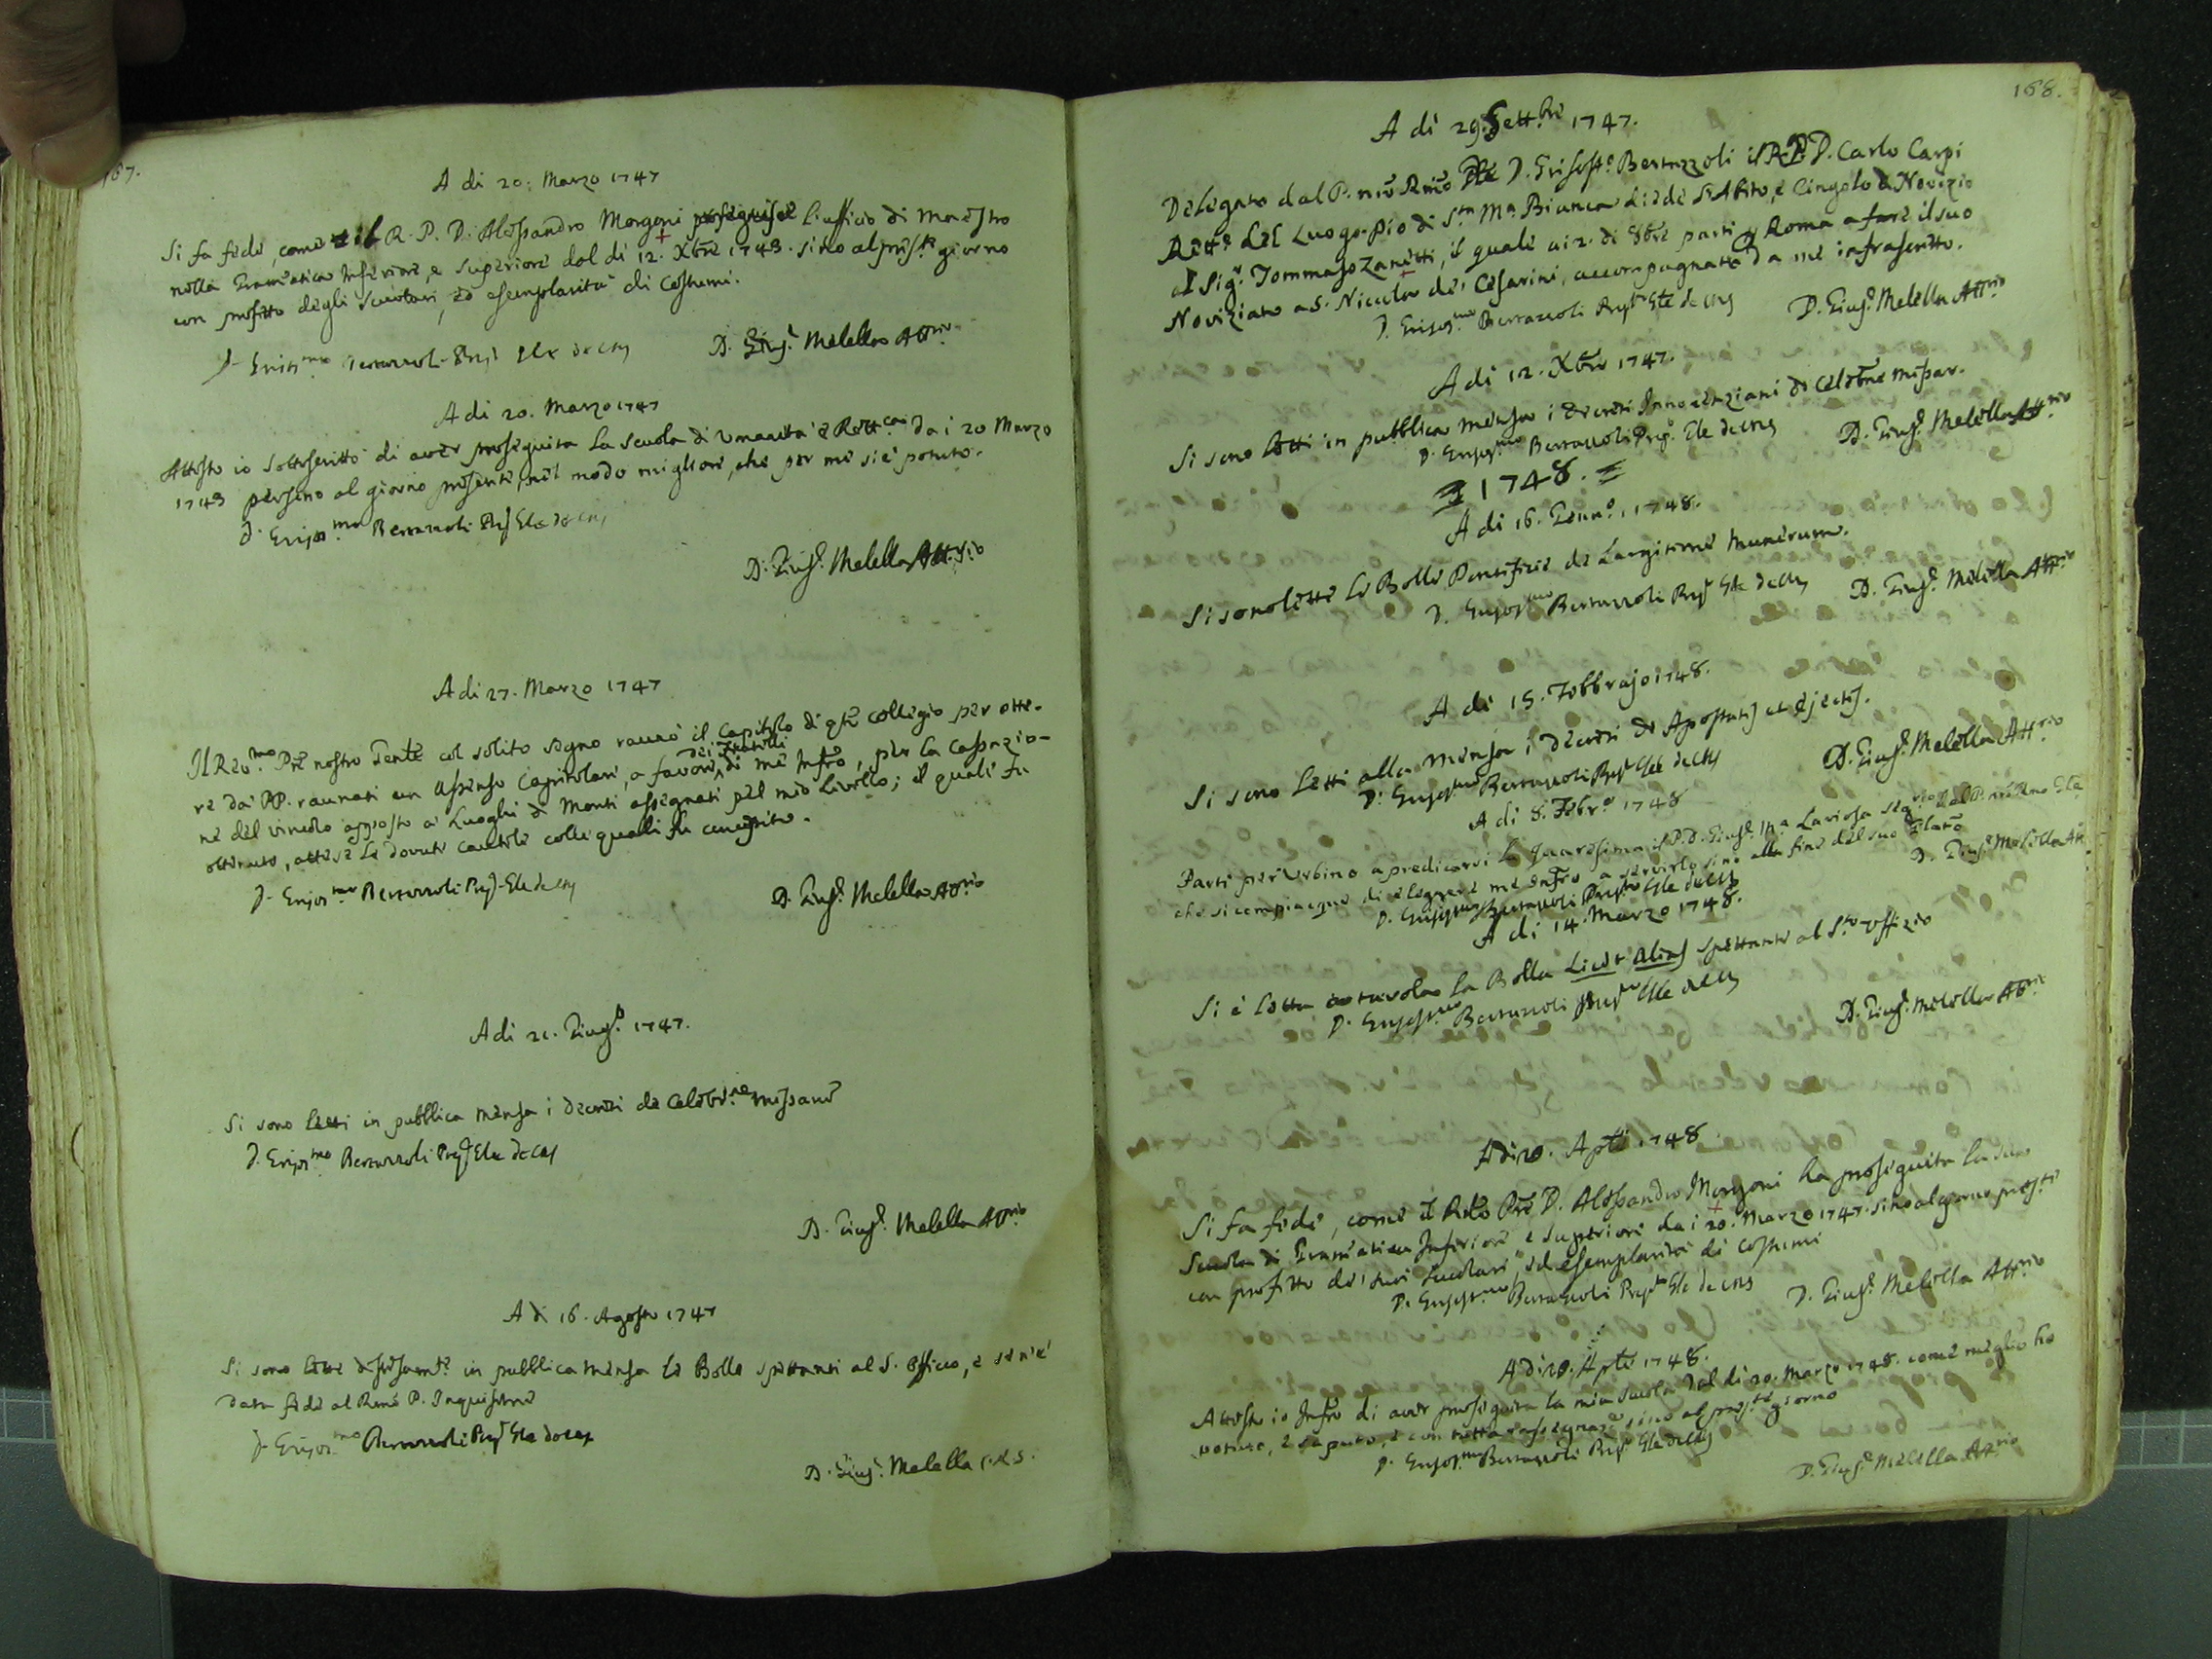 167.
A di 20. Marzo 1747
Si fa fede, come il R. P. D. Alessandro Morgoni proseguisce l'uffizio di Maestro
nella Gram̃atica Inferiore, e Superiore dal dì 12. Xbre 1743. sino al pres.te giorno
con profitto degli Scolari, ed esemplarità di Costumi.
D. Grisos.mo Bertazzoli Prep.
D. Gius.e Melella Att.rio
A di 20. Marzo 1747
Attesto io sottoscritto di aver proseguita la scuola di Umanità e Rett.ca da i 20 Marzo
1743 persino al giorno presente, nel modo migliore, che per me si è potuto.
D. Grisos.mo Bertazzoli Prep.
D. Gius.e Melella Att.rio
A di 27. Marzo 1747
Il Rev.mo Pre nostro col solito segno raunò il Capitolo di qto Collegio per otte-
dei Fratelli
re da' PP. raunati un Assenso Capitolare, a favore, di me Infro, per la Cassazio-
ne del vincolo apposto a' Luoghi di Monti assegnati pel mio Livello; il quale fu
ottenuto, attese le dovute cautele colle quali fu
D. Grisos.mo Bertazzoli Prep.
D. Gius.e Melella Att.rio
A di 21. Giug.o 1747.
Si sono letti in pubblica mensa i decreti de Celebr.ne missarũ
D. Grisos.mo Bertazzoli Prep.
D. Gius.e Melella Att.rio
A di 16. Agosto 1747
Si sono lette in pubblica mensa le Bolle spettanti al S. Officio, e se n'è
data fede al Rmo P. Inquisitore
D. Grisos.mo Bertazzoli Prep.
D. Gius.e Melella C.R.S.
168.
A di 29. Sett.bre 1747.
Delegato dal P. nro Rmo D. Grisost.o Bertazzoli il R. P. D. Carlo Carpi
Rett.e del Luogo Pio di S.ta M.a Bianca diede l'Abito, e Cingolo di Novizio
al Sig.r Tommaso Zanetti, il quale ai 2. di 8bre partì p Roma a fare il suo
Noviziato a S. Niccola de' Cesarini, accompagnato da me infrascritto.
D. Grisos.mo Bertazzoli Prep.
D. Gius.e Melella Att.rio
A di 12. Xbre 1747.
Si sono letti in pubblica mensa i Decreti Innocenziani de Celebrne missar.
D. Grisos.mo Bertazzoli Prep.
D. Gius.e Melella Att.rio
1748.
A di 16. Genn.o 1748.
Si sono lette le Bolle Pontificie de Largitione Munerum.
D. Grisos.mo Bertazzoli Prep.
D. Gius.e Melella Att.rio
A di 15. Febbrajo 1748.
Si sono letti alla mensa i Decreti de Apostatis et ejectis.
D. Grisos.mo Bertazzoli Prep.
D. Gius.e Melella Att.rio
A di 8. Febr.o 1748
Partì per Urbino a predicarvi la quaresima il P. D. Gius.e M.a Laviosa
che si compiacque di eleggere me Infro a servirlo sino alla fine del suo
D. Gius.e Melella Att.
D. Grisos.mo Bertazzoli Prep.
A di 14. Marzo 1748.
Si è letta a tavola la Bolla Licet Alias spettante al S.to Uffizio
D. Grisos.mo Bertazzoli Prep.
D. Gius.e Melella Att.rio
A di 20. Aple 1748
Si fa fede, come il Rdo Pre D. Alessandro Morgoni ha proseguita la sua
Scuola di Gram̃atica Inferiore e Superiore da i 20. Marzo 1747. sino al giorno presẽte
con profitto de' suoi Scolari, ed esemplarità di Costumi
D. Grisos.mo Bertazzoli Prep.
D. Gius.e Melella Att.rio
A di 20. Aple 1748.
Attesto io Infro di aver proseguita la mia Scuola dal dì 20. Marzo 1748. come meglio ho
potuto, e saputo, e con tutta rassegnaze sino al pres.te giorno
D. Grisos.mo Bertazzoli Prep.
D. Gius.e Melella Att.rio